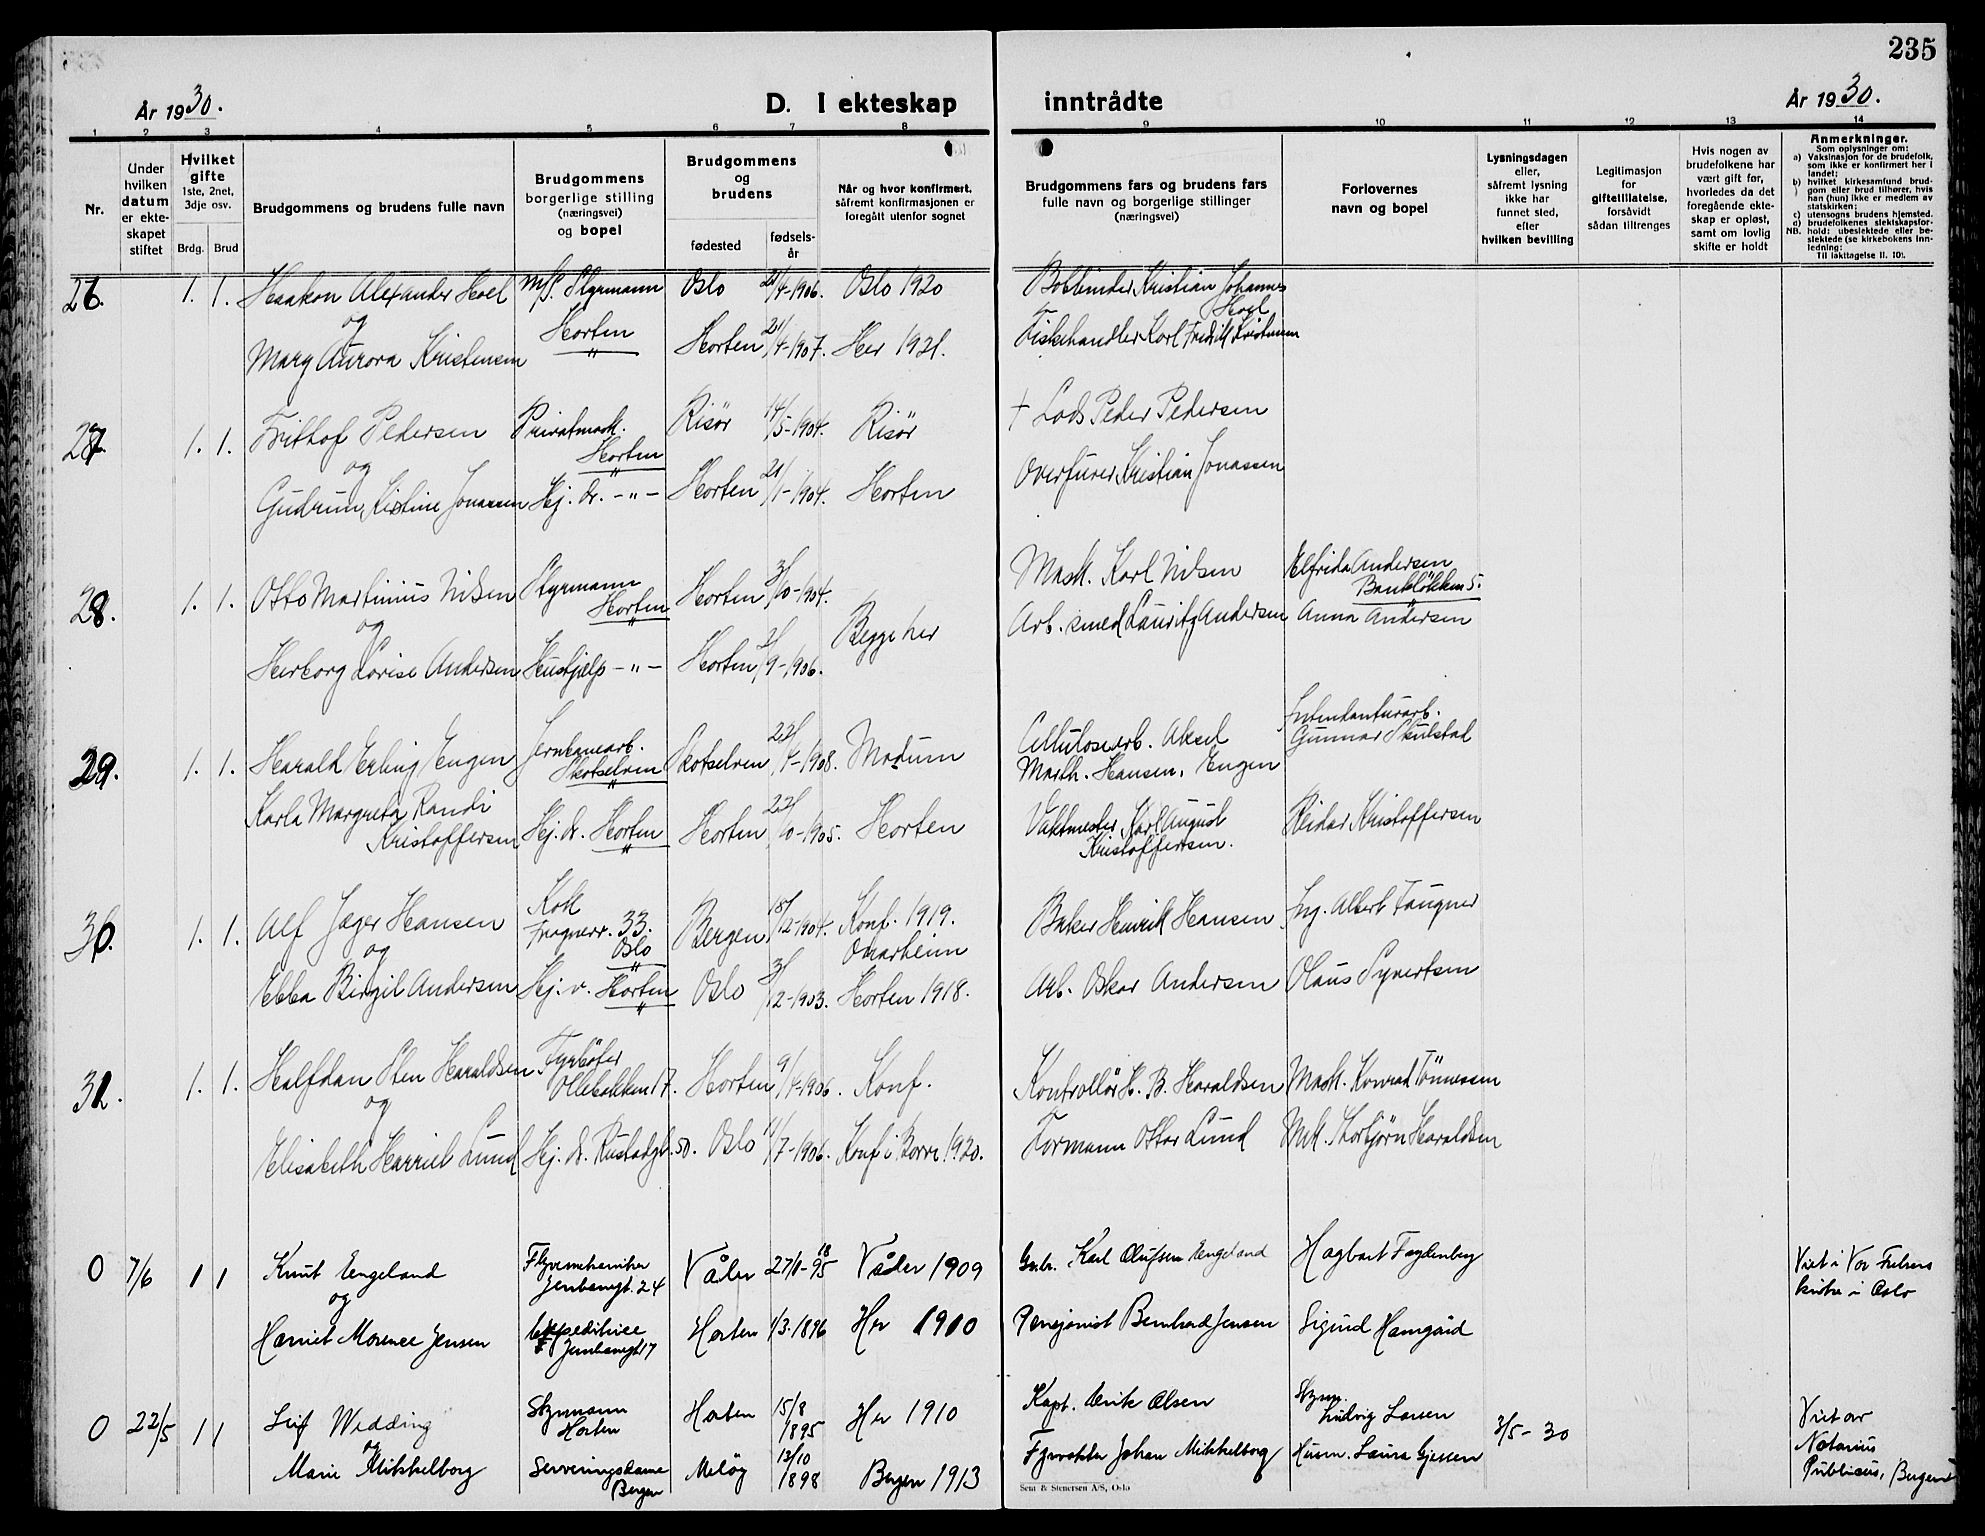 235
År 1930.
D. I ekteskap inntrådte
År 1930.
1 2 3 4 5 6 7 8 9 10 11 12 13 14
Nr.
Under hvilken datum er ekteskapet stiftet
Hvilket gifte
1ste, 2net, 3dje osv.
Brdg. Brud
Brudgommens og brudens fulle navn
Brudgommens borgerlige stilling (næringsvei) og bopel
Brudgommens og brudens
fødested
fødselsår
Når og hvor konfirmert, såfremt konfirmasjonen er foregått utenfor sognet
Brudgommens fars og brudens fars fulle navn og borgerlige stillinger (næringsvei)
Forlovernes navn og bopel
Lysningsdagen eller, såfremt lysning ikke har funnet sted, efter hvilken bevilling
Legitimasjon for giftetillatelse, forsåvidt sådan tiltrenges
Hvis nogen av brudefolkene har vært gift før, hvorledes da det foregående ekteskap er opløst, samt om lovlig skifte er holdt
Anmerkninger.
Som oplysninger om:
a) Vaksinasjon for de brudefolk, som ikke er konfirmert her i landet;
b) hvilket kirkesamfund brudgom eller brud tilhører, hvis han (hun) ikke er medlem av statskirken;
c) utensogns brudens hjemsted.
d) brudefolkenes slektskapsforhold: ubeslektede eller beslektede (se kirkebokens innledning;
NB. Til iakttagelse II. 10).
26. 1. 1. Haakon Alexander Hoel M/S. Styrmann Oslo 21/4-1906. Oslo 1920 Bokbinder Kristian Johannes Hoel
og Horten
Mary Aurora Kristensen " Horten 21/4-1907. Her 1921. Fiskehandler Karl Fredrik Kristensen
27. 1. 1. Frithof Pedersen Privatmask. Horten Risør 14/5-1904. Risør † Lods Peder Pedersen
og
Gudrun Kristine Jonassen Hj. dr. -"- Horten 21/1-1904. Horten Overfurer Kristian Jonassen
28. 1. 1. Otto Martinius Nilsen Styrmann Horten Horten 3/10-1904. Mask. Karl Nilsen Elfrida Andersen
Bankløkken 5.
og Begge her
Herborg Lovise Andersen Hushjelp -"- Horten 2/9-1906. Arb. smed Lauritz Andersen Anna Andersen
29. 1. 1. Harald Erling Engen Jernbanearb. Skotselven Skotselven 22/4-1908. Modum Cellulosearb. Aksel Marth. Hansen Engen Intendanturarb. Gunnar Skulstad
Karla Margreta Randi Kristoffersen Hj. dr. Horten Horten 22/10-1905. Horten Vaktmester Karl August Kristoffersen. Reidar Kristoffersen
30. 1. 1. Alf Jæger Hansen Kokk Frognerv. 33. Oslo Bergen 18/12-1904. Konf. 1919. Omarheim Baker Henrik Hansen Ing. Albert Taugner
og
Ebba Birgit Andersen Hj. v. Horten Oslo 3/12-1903. Horten 1918. Arb. Oskar Andersen Olaus Syvertsen
31. 1. 1. Halfdan Sten Haraldsen Fyrbøter Ollebakken 17. Horten 9/4-1906. Konf. Kontrollør H. B. Haraldsen Mask. Konrad Tønnessen
og
Elisabeth Harriet Lund Hj. dr. Rustadgt. 50. Oslo 11/7-1906. Konf i Borre 1920. Formann Ottar Lund Mek. Thorbjørn Haraldsen
0 7/6 1 1 Knut Engeland Flyvemekaniker Jernbanegt. 24 Våler 27/1-1895 Våler 1909 Gbr. Karl Olufsen Engeland Hagbart Fredenberg Viet i Vor Frelsers kirke i Oslo
og
Harriet Morence Jensen Expeditrice Jernbanegt 17 Horten 1/3-1896 Her 1910 Pensjonist Bernhard Jensen Sigurd Hamgård
0 22/5 1 1 Leif Widding Styrmann Horten Horten 15/8 1895 Her 1910 Kapt. Henrik Olsen Styrm. Ludvig Larsen 3/5-30 Viet av Notarius Publicus, Bergen
og
Marie Mikkelborg Serveringsdame Bergen Meløy 13/10 1898 Bergen 1913 Fyrvokter Johan Mikkelborg Husm. Laura Gjessen
Sem & Stenersen A/S, Oslo